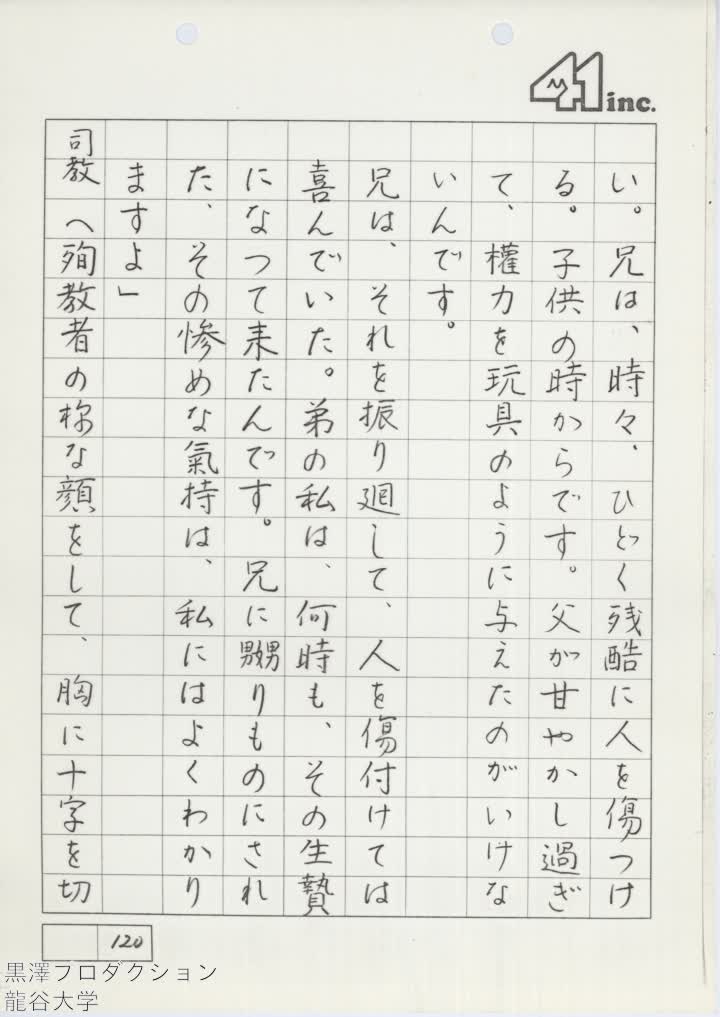 41 inc.
い。兄は、時々、ひどく残酷に人を傷つけ
る。子供の時からです。父が甘やかし過ぎ
て、權力を玩具のように与えたのがいけな
いんです。
兄は、それを振り廻して、人を傷付けては
喜んでいた。弟の私は、何時も、その生贄
になって来たんです。兄に嬲りものにされ
た、その惨めな氣持は、私にはよくわかり
ますよ」
司教 へ殉教者の様な顔をして、胸に十字を切
120
黒澤プロダクション
龍谷大学